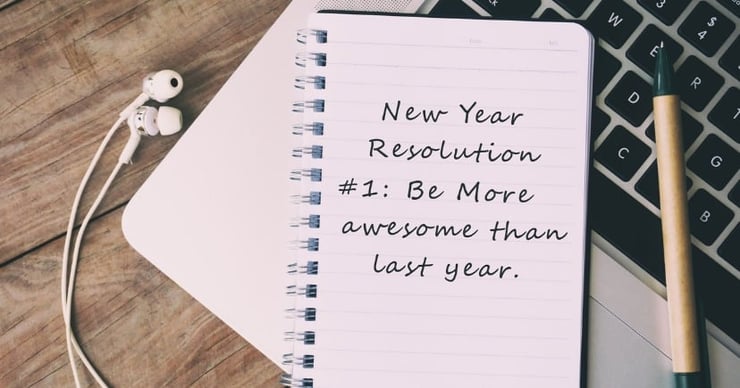 New Year
Resolution
#1: Be More
awesome than
last year.
W
E
R
D
C
G
B
3
$
4